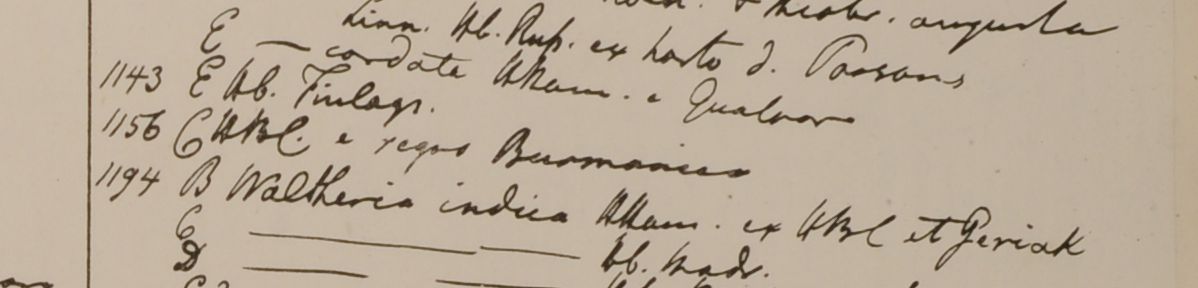 augusta
Linn. Hb. Rup. ex horto d. Parsons
E — cordata Aham. e Gualpar
1143 E Hb. Finlays.
1156 C HBC. e regno Burmanico
1194 B Waltheria indica Aham. ex HBC et Geriak
C — —
D — — Hb. Madr.